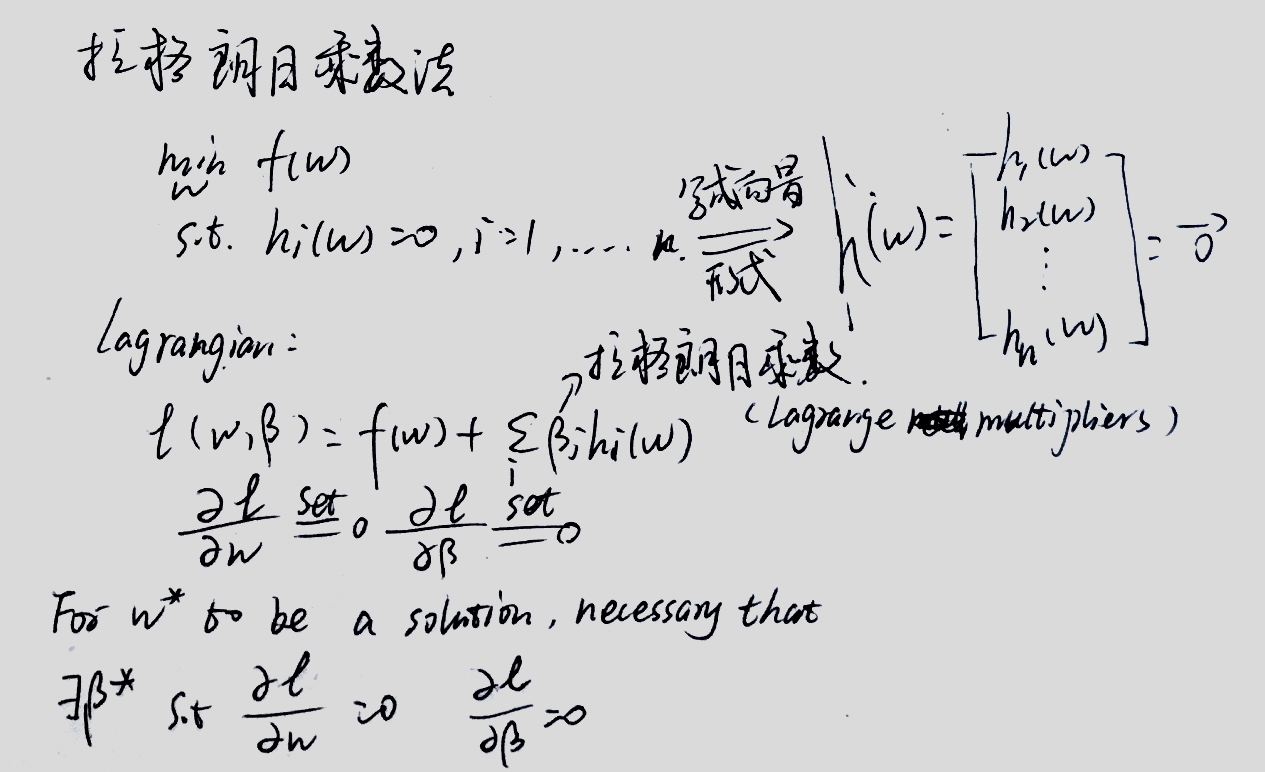 拉格朗日乘数法
min f(w)
w
s.t. hi(w)=0, i=1, .... n. 写成向量形式 ⟹ h(w)= [h₁(w) h₂(w) ⋮ hₙ(w)] = 0⃗
Lagrangian:
→ 拉格朗日乘数.
ℓ(w,β) = f(w) + Σ βihi(w) (Lagrange multipliers)
i
∂ℓ/∂w set= 0 ∂ℓ/∂β set= 0
For w* to be a solution, necessary that
∃β* s.t ∂ℓ/∂w =0 ∂ℓ/∂β =0